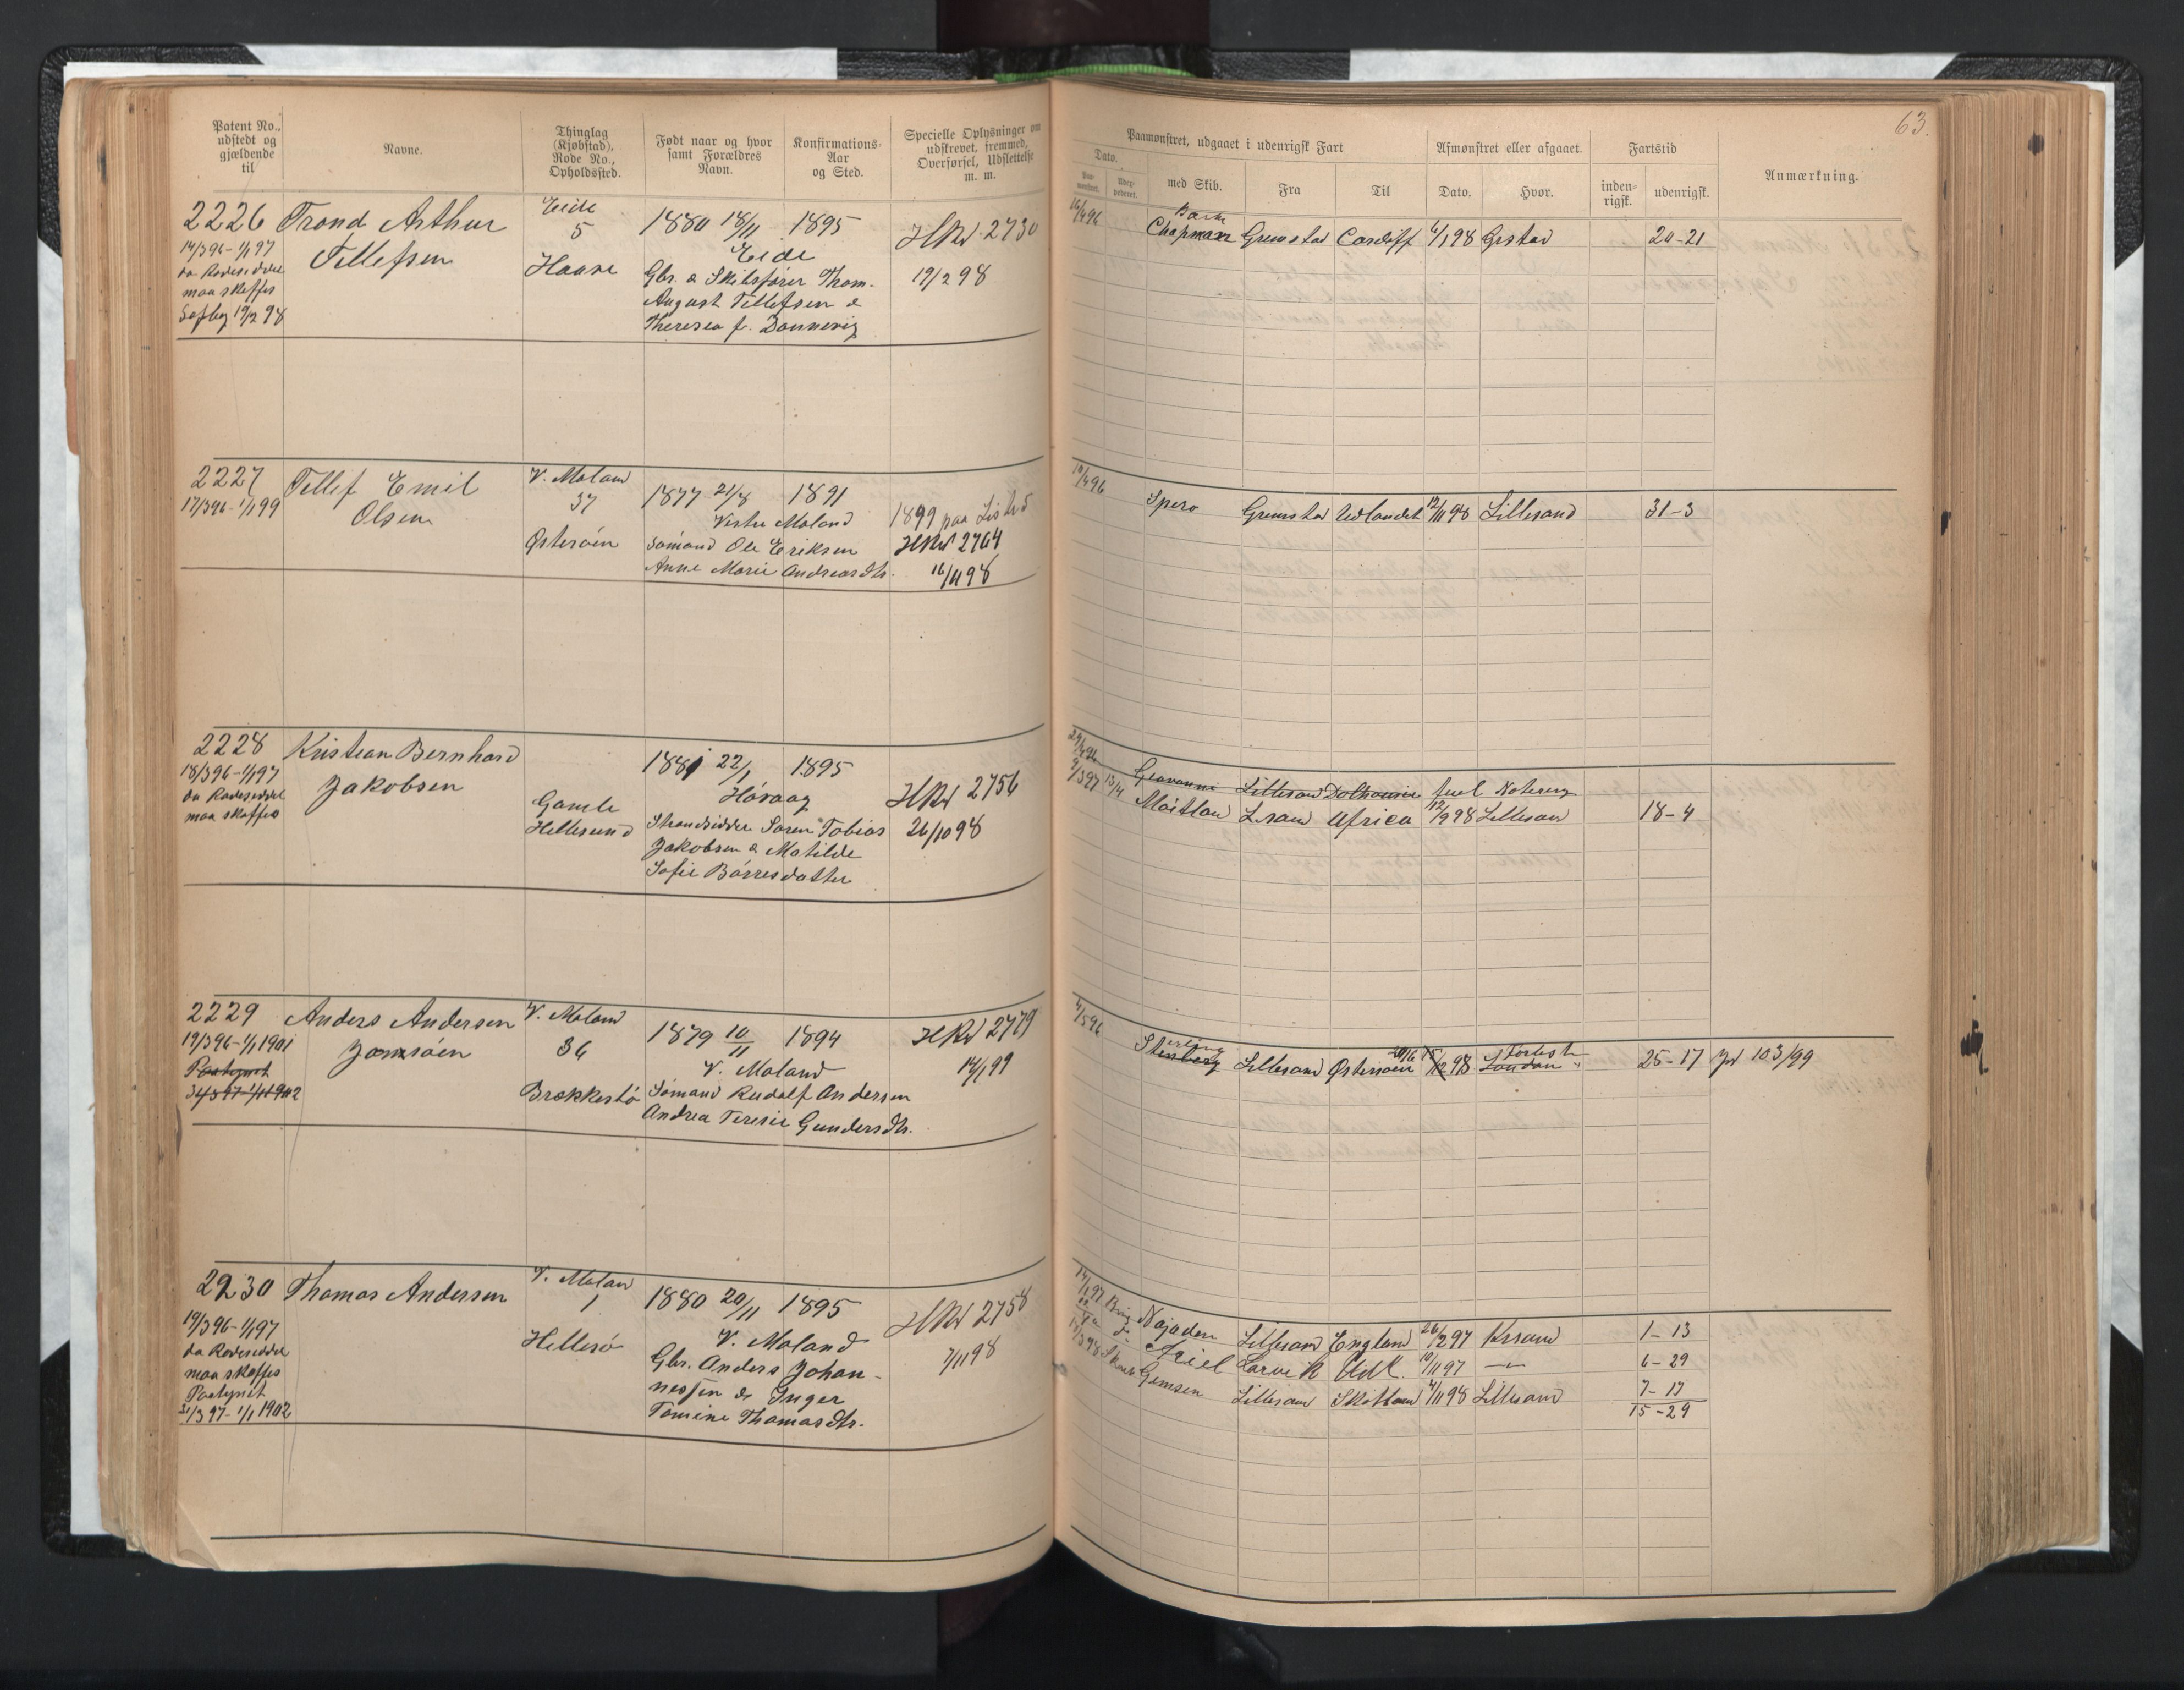 63.
Patent No., udstedt og gjældende til
Navne.
Thinglag (Kjøbstad), Rode No., Opholdssted.
Født naar og hvor samt Forældres Navn.
Konfirmations-Aar og Sted.
Specielle Oplysninger om udskrevet, fremmed, Overførsel, Udslettelse m. m.
Paamønstret, udgaaet i udenrigsk Fart
Afmønstret eller afgaaet.
Fartstid
Anmærkning.
Dato.
med Skib.
Fra
Til
Dato.
Hvor.
inden-rigsk.
udenrigsk.
2226 Trond Arthur Eide 1880 18/11 1895 HRul 2730
14/3 96 - 1/1 97 Tellefsen 5 Eide
da Rodeseddel Haave Gbr. & Skibsfører Thom. 19/2 98
maa skaffes August Tellefsen &
19/2 98 Theresea f. Dannevig
16/4 96 Bark Chapman Grimstad Cardiff 4/1 98 Grstad 20-21
2227 Tellef Emil V. Moland 1877 21/8 1891 1899 paa Listed
17/3 96 - 1/1 99 Olsen 37 Vestre Moland HRul 2764
Østerøen Sømand Ole Eriksen
Anne Marie Andreasdtr. 16/11 98
10/4 96 Spero Grimstad Udlandet 12/11 98 Lillesand 31-3
2228 Kristian Bernhard 1881 22/1 1895 HRul 2756
18/3 96 - 1/1 97 Jakobsen Høvaag
da Rodeseddel Gamle
maa skaffes Hellesund Strandsidder Søren Tobias 26/10 98
Jakobsen & Matilde
Sofie Børresdatter
29/4 96 Giovanni Lillesand Dalhousie feil Notering
9/3 97 13/4 Maitlan L.sand Africa 12/9 98 Lillesan 18-4
2229 Anders Andersen V. Moland 1879 10/11 1894 HRul 2779
19/3 96 - 1/1 1901 Jonsøen 36 V. Moland 14/1 99
Paategnet Brækkestø Sømand Rudolf Andersen
Andrea Teresie Gundersdtr.
4/5 96 Lillesand Østersøen 98 London 25-17 103/99
2230 Thomas Andersen V. Molan 1880 20/11 1895 HRul 2758
19/3 96 - 1/1 97 1 V. Moland
da Rodeseddel Hellesø Gbr. Anders Johan- 7/11 98
maa skaffes nessen & Inger
Paategnet Tomine Thomasdtr.
31/3 97 - 1/1 1902
14/1 97 Brig Najaden Lillesand England 26/2 97 Krsand 1-13
Ariel Larvik Udl. 10/11 97 — 6-29
Gemsen Lillesan Skotland 4/11 98 Lillesand 7-17
15-29